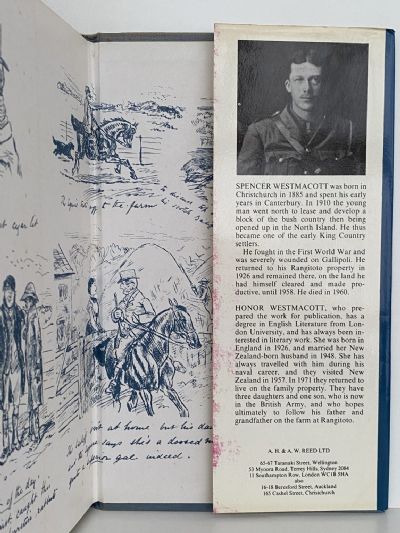 to the farm
at home but his
says she's a
gal indeed.
of the day"
SPENCER WESTMACOTT was born in
Christchurch in 1885 and spent his early
years in Canterbury. In 1910 the young
man went north to lease and develop a
block of the bush country then being
opened up in the North Island. He thus
became one of the early King Country
settlers.
He fought in the First World War and
was severely wounded on Gallipoli. He
returned to his Rangitoto property in
1926 and remained there, on the land he
had himself cleared and made pro-
ductive, until 1958. He died in 1960.
HONOR WESTMACOTT, who pre-
pared the work for publication, has a
degree in English Literature from Lon-
don University, and has always been in-
terested in literary work. She was born in
England in 1926, and married her New
Zealand-born husband in 1948. She has
always travelled with him during his
naval career, and they visited New
Zealand in 1957. In 1971 they returned to
live on the family property. They have
three daughters and one son, who is now
in the British Army, and who hopes
ultimately to follow his father and
grandfather on the farm at Rangitoto.
A. H. & A. W. REED LTD
65-67 Taranaki Street, Wellington
53 Myoora Road, Terrey Hills, Sydney 2084
11 Southampton Row, London WC1B 5HA
also
16-18 Beresford Street, Auckland
165 Cashel Street, Christchurch